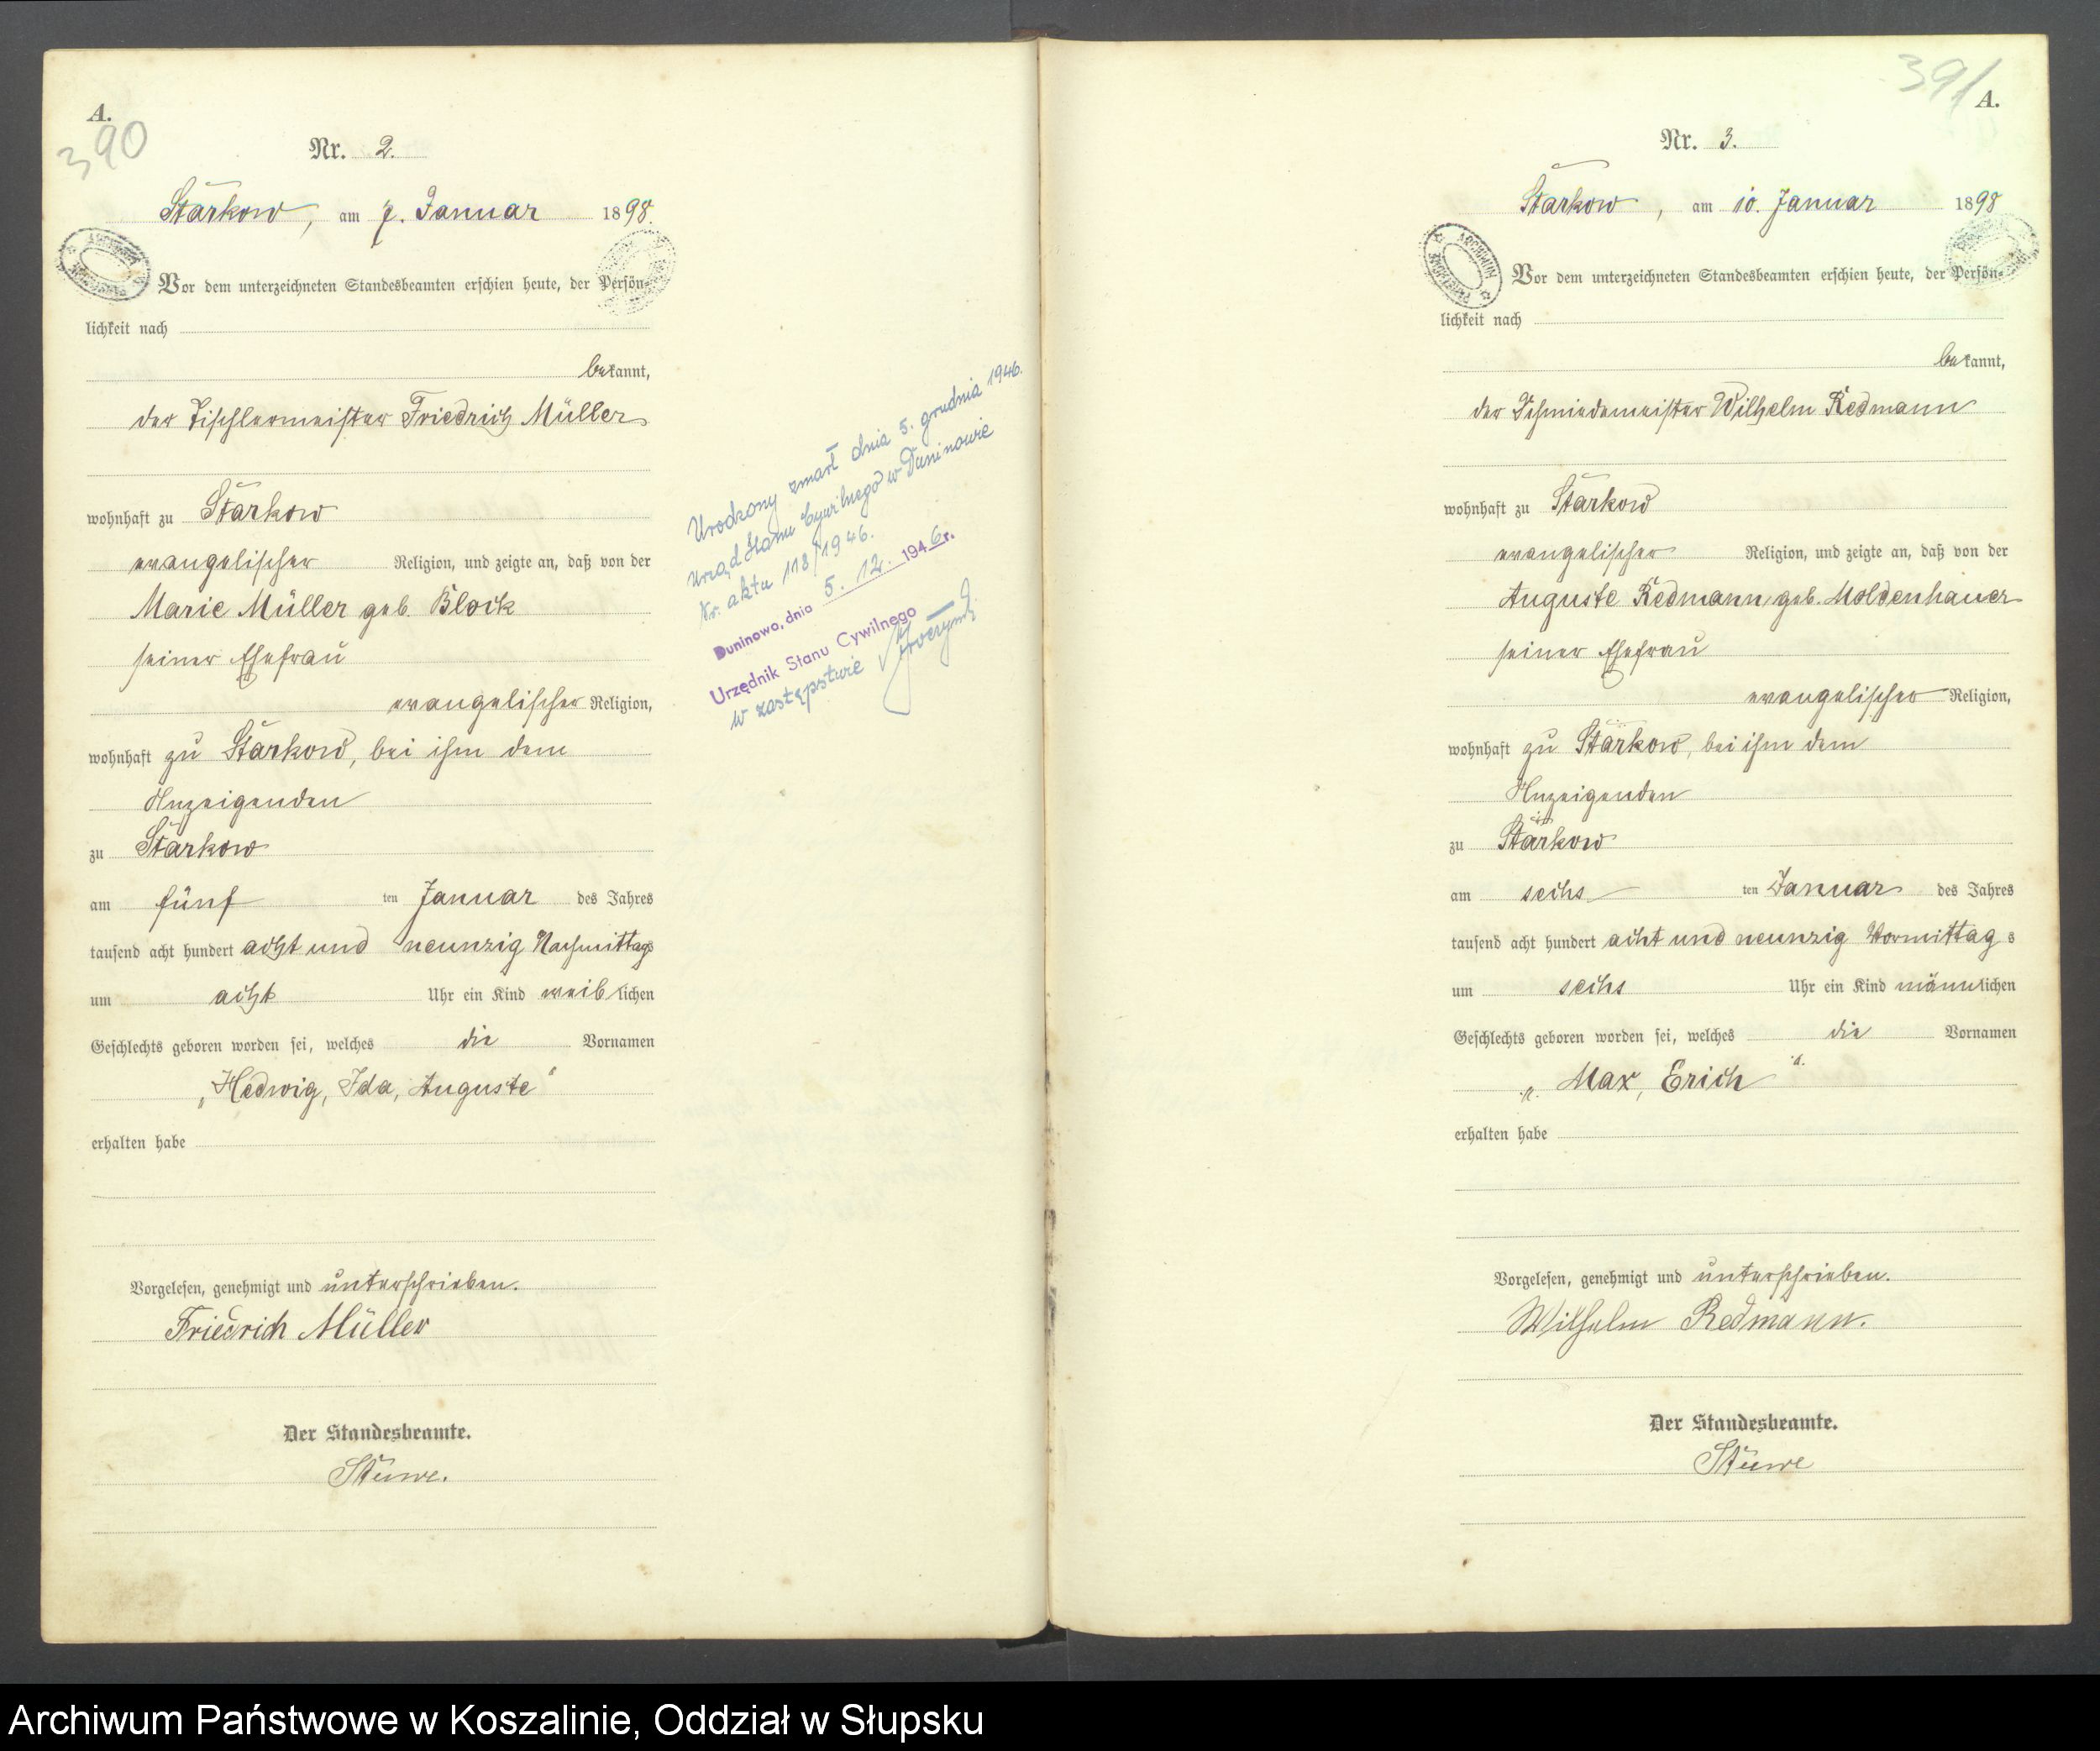 A.
390
Nr. 2.
Starkow, am 7. Januar 1898.
Vor dem unterzeichneten Standesbeamten erschien heute, der Persön-
lichkeit nach
bekannt,
der Tischlermeister Friedrich Müller
wohnhaft zu Starkow
evangelischer Religion, und zeigte an, daß von der
Marie Müller geb. Block
seiner Ehefrau
evangelischer Religion,
wohnhaft zu Starkow, bei ihm dem
Anzeigenden
zu Starkow
am fünf ten Januar des Jahres
tausend acht hundert acht und neunzig Nachmittags
um acht Uhr ein Kind weiblichen
Geschlechts geboren worden sei, welches die Vornamen
„Hedwig, Ida, Auguste“
erhalten habe
Vorgelesen, genehmigt und unterschrieben.
Friedrich Müller
Der Standesbeamte.
Stüwe.
Urodzony zmarł dnia 5. grudnia 1946.
Urząd Stanu Cywilnego w Duninowie
Nr. aktu 118/1946.
Duninowo, dnia 5. 12. 1946 r.
Urzędnik Stanu Cywilnego
w zastępstwie
391
A.
Nr. 3.
Starkow, am 10. Januar 1898
ARCHIWUM
Vor dem unterzeichneten Standesbeamten erschien heute, der Persön-
lichkeit nach
bekannt,
der Schmiedemeister Wilhelm Redmann
wohnhaft zu Starkow
evangelischer Religion, und zeigte an, daß von der
Auguste Redmann, geb. Moldenhauer
seiner Ehefrau
evangelischer Religion,
wohnhaft zu Starkow, bei ihm dem
Anzeigenden
zu Starkow
am sechs ten Januar des Jahres
tausend acht hundert acht und neunzig Vormittags
um sechs Uhr ein Kind männlichen
Geschlechts geboren worden sei, welches die Vornamen
„Max, Erich“
erhalten habe
Vorgelesen, genehmigt und unterschrieben.
Wilhelm Redmann.
Der Standesbeamte.
Stüwe
Archiwum Państwowe w Koszalinie, Oddział w Słupsku